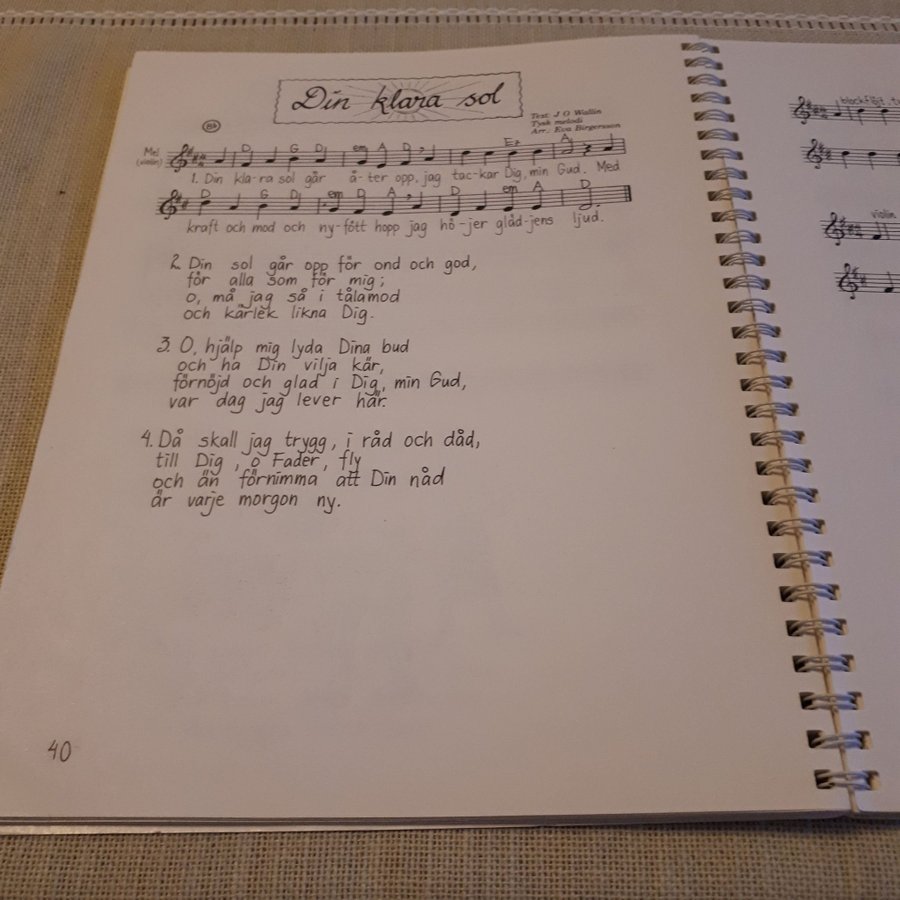 Din klara sol
Text: J O Wallin
Tysk melodi
Arr.: Eva Birgersson
Mel.
(violin)
D G D em A D E7 A
1. Din kla-ra sol går å-ter opp, jag tac-kar Dig, min Gud. Med
D G D em D A D em A D
kraft och mod och ny-fött hopp jag hö-jer gläd-jens ljud.
2. Din sol går opp för ond och god,
för alla som för mig;
o, må jag så i tålamod
och kärlek likna Dig.
3. O, hjälp mig lyda Dina bud
och ha Din vilja kär,
förnöjd och glad i Dig, min Gud,
var dag jag lever här.
4. Då skall jag trygg, i råd och dåd,
till Dig, o Fader, fly
och än förnimma att Din nåd
är varje morgon ny.
40
blockflöjt
violin